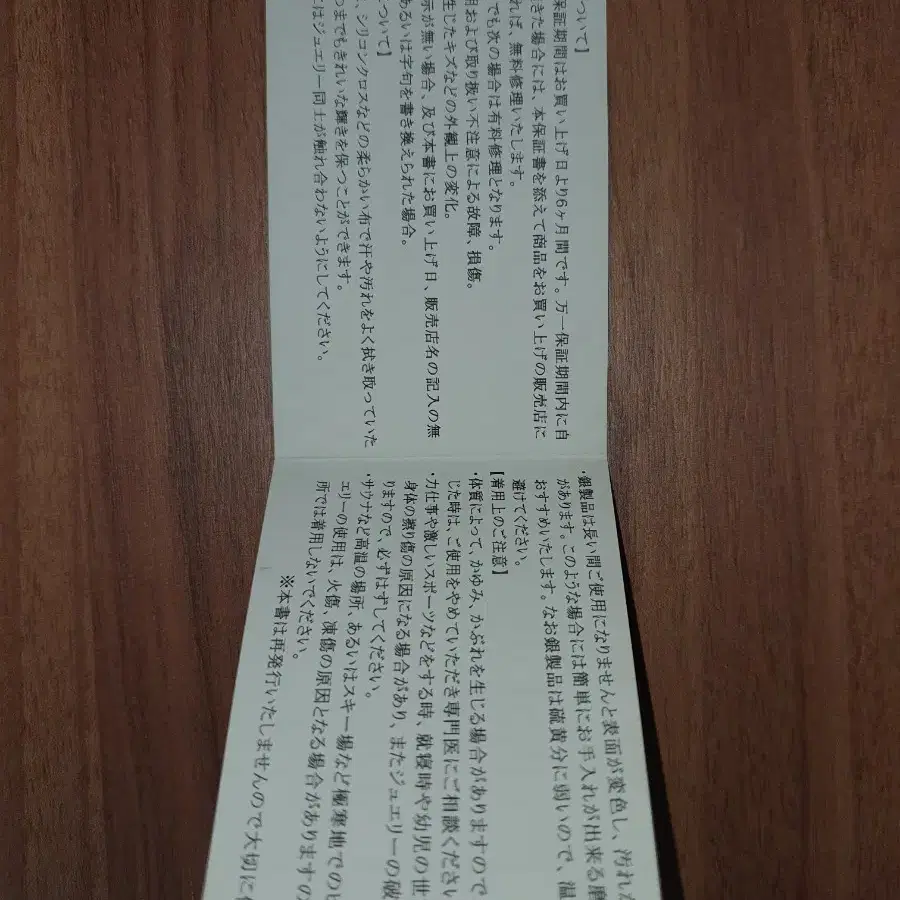 ついて】
保証期間はお買い上げ日より6ヶ月間です。万一保証期間内に自
きた場合には、本保証書を添えて商品をお買い上げの販売店に
れば、無料修理いたします。
でも次の場合は有料修理となります。
用および取り扱い不注意による故障、損傷。
生じたキズなどの外観上の変化。
示が無い場合、及び本書にお買い上げ日、販売店名の記入の無
あるいは字句を書き換えられた場合。
ついて】
、シリコンクロスなどの柔らかい布で汗や汚れをよく拭き取っていた
つまでもきれいな輝きを保つことができます。
はジュエリー同士が触れ合わないようにしてください。
・銀製品は長い間ご使用になりませんと表面が変色し、汚れ
があります。このような場合には簡単にお手入れが出来る磨
おすすめいたします。なお銀製品は硫黄分に弱いので、温
避けてください。
【着用上のご注意】
・体質によって、かゆみ、かぶれを生じる場合がありますので
じた時は、ご使用をやめていただき専門医にご相談ください
・力仕事や激しいスポーツなどをする時、就寝時や幼児の世
身体の擦り傷の原因になる場合があり、またジュエリーの破
りますので、必ずはずしてください。
・サウナなど高温の場所、あるいはスキー場など極寒地での
エリーの使用は、火傷、凍傷の原因となる場合がありますの
所では着用しないでください。
※本書は再発行いたしませんので大切に